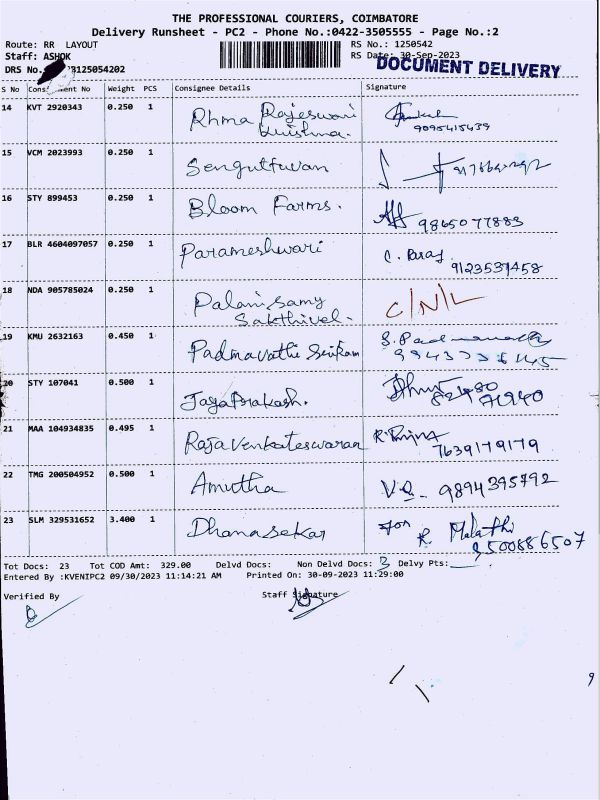 THE PROFESSIONAL COURIERS, COIMBATORE
Delivery Runsheet - PC2 - Phone No.:0422-3505555 - Page No.:2
Route: RR LAYOUT RS No.: 1250542
Staff: ASHOK RS Date: 30-Sep-2023
DOCUMENT DELIVERY
DRS No. 3125054202
S No Consignment No Weight PCS Consignee Details Signature
14 KVT 2920343 0.250 1 Rhma Rajeswari
Krishna. 9095415439
15 VCM 2023993 0.250 1 Senguttuvan
16 STY 899453 0.250 1 Bloom Farms. 9865077883
17 BLR 4604097057 0.250 1 Parameshwari C. Baraj
9123537458
18 NDA 905785024 0.250 1 Palanisamy C/N/L
Sakthivel.
19 KMU 2632163 0.450 1 Padmavathi Srikam S. Padmanabha
20 STY 107041 0.500 1 JayaPrakash.
21 MAA 104934835 0.495 1 RajaVenkateswaran 7639179179
22 TMG 200504952 0.500 1 Amutha V.S. 9894395792
23 SLM 329531652 3.400 1 Dhanasekar for R. Malathi
9500886507
Tot Docs: 23 Tot COD Amt: 329.00 Delvd Docs: Non Delvd Docs: 3 Delvy Pts:
Entered By :KVENIPC2 09/30/2023 11:14:21 AM Printed On: 30-09-2023 11:29:00
Verified By Staff Signature
9